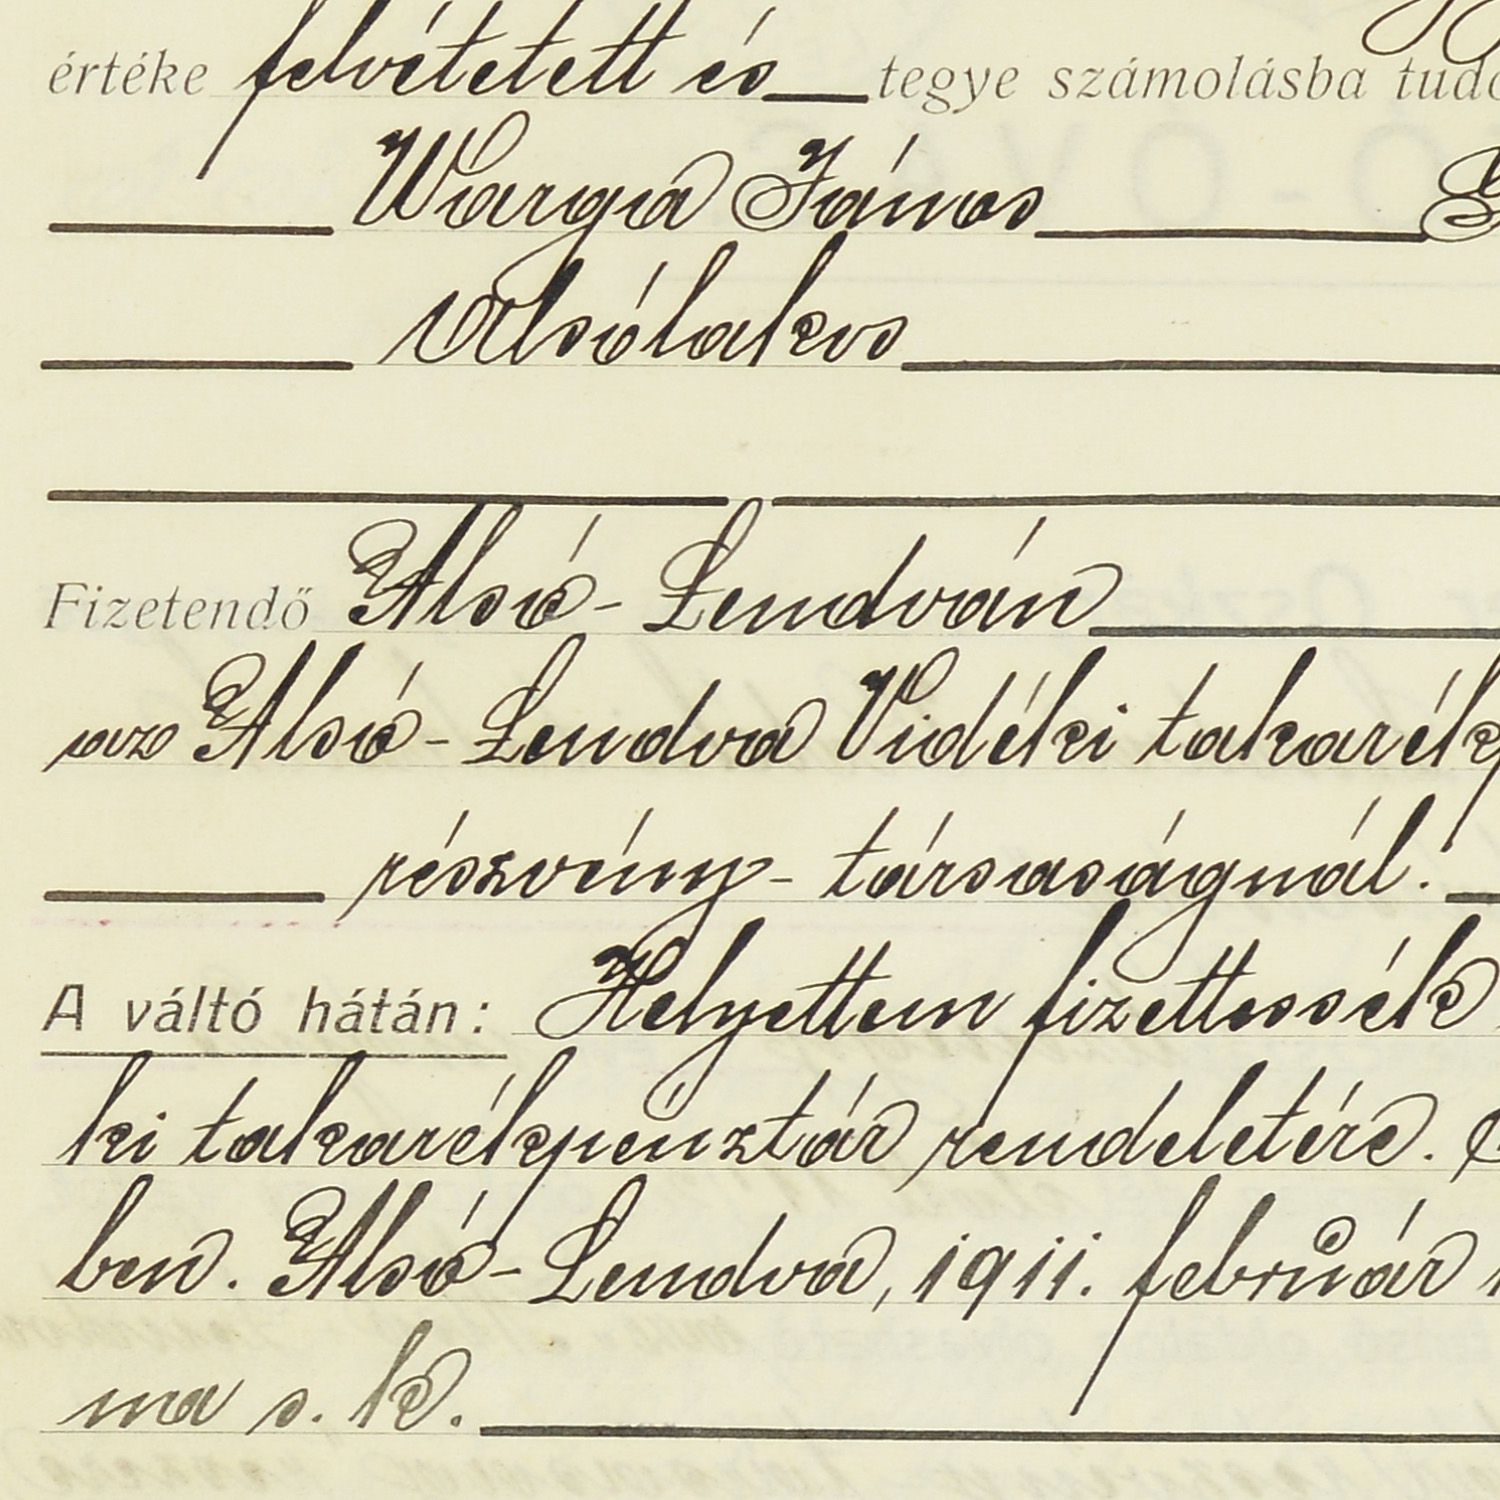 értéke felvétetett és tegye számolásba
Warga János
Alsólakos
Fizetendő Alsó-Lendván
az Alsó-Lendva Vidéki takarékp
részvény-társaságnál.
A váltó hátán: Helyettem fizettessék
ki takarékpénztár rendeletére.
ben. Alsó-Lendva, 1911. február
ma s. k.